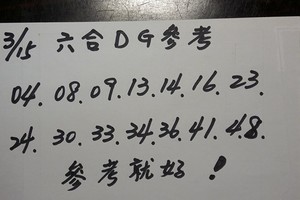 3/15 六合DG參考
04. 08. 09. 13. 14. 16. 23.
24. 30. 33. 34. 36. 41. 48.
參考就好！